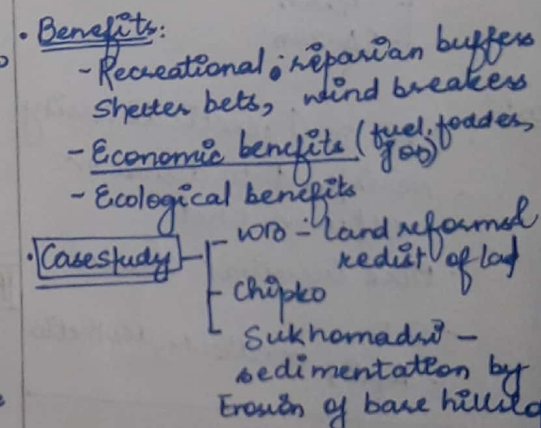 • Benefits:
- Recreational : reparian buffers
Shetter bets, wind breakers
- Economic benefits (fuel, fodder,
job)
- Ecological benefits
• Casestudy - land reformed
redist of lad
Chipko
Sukhomadri -
sedimentation by
Erosion of base hills